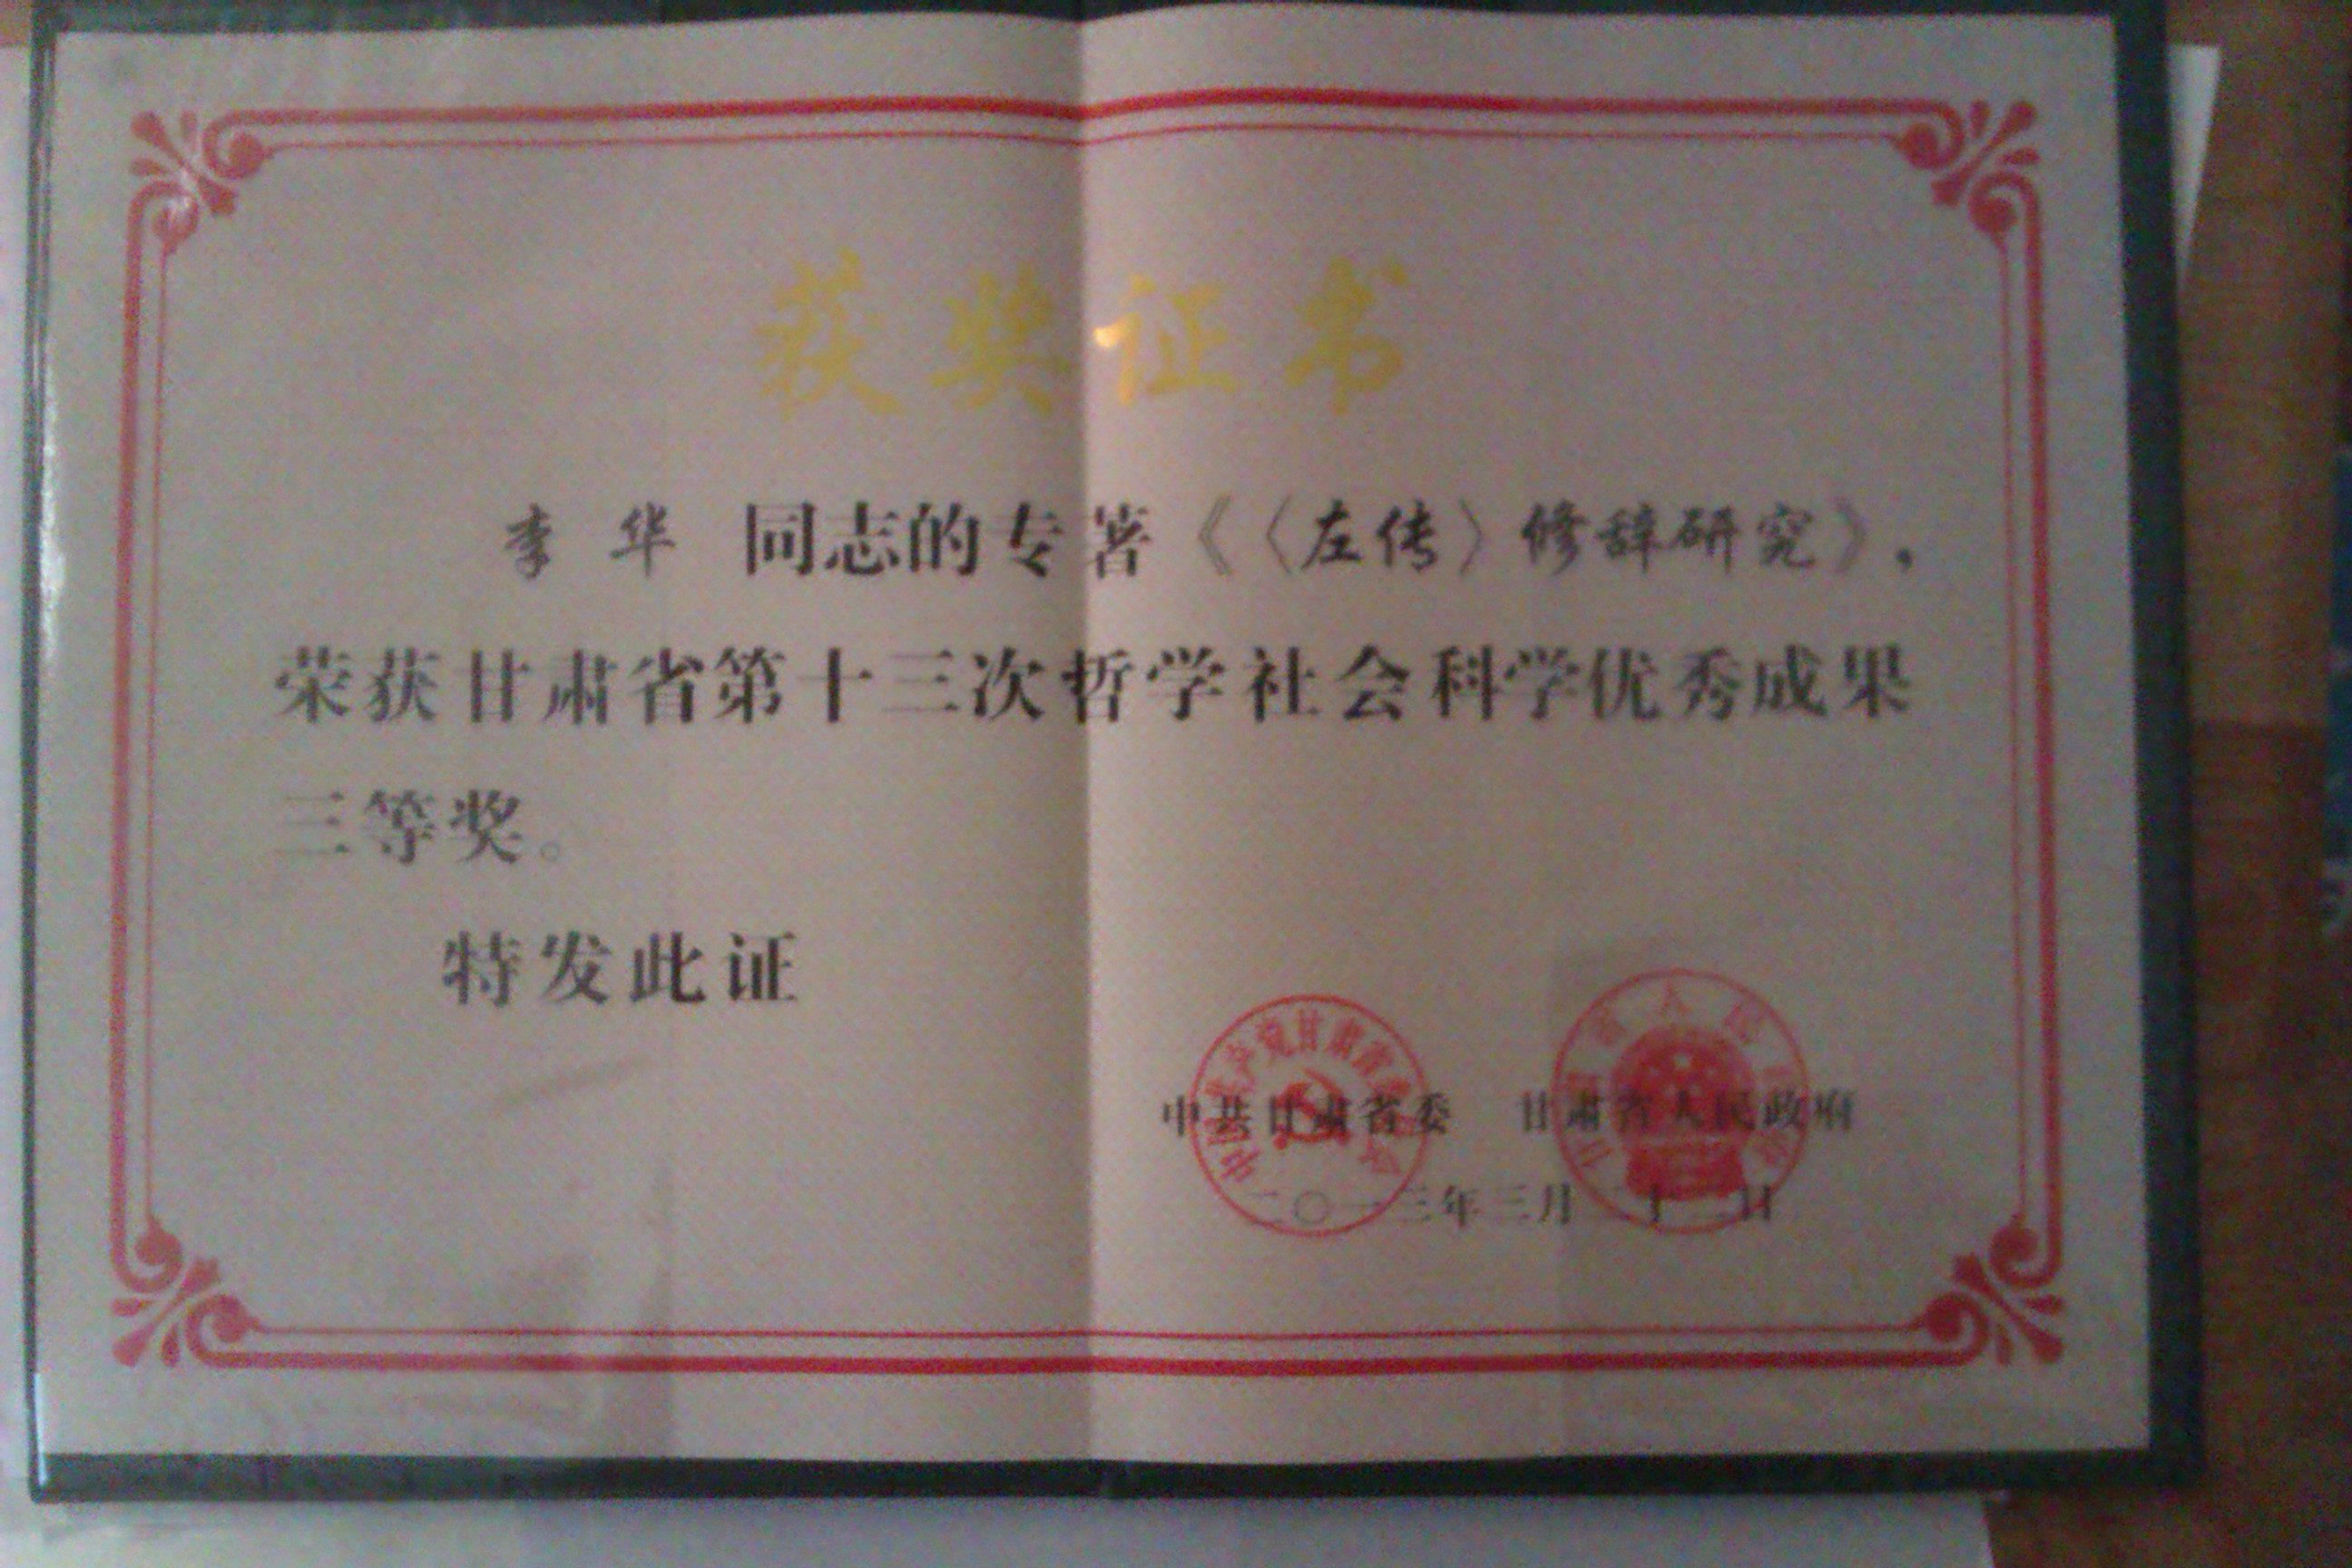 获奖证书
李华 同志的专著《〈左传〉修辞研究》，
荣获甘肃省第十三次哲学社会科学优秀成果
三等奖。
特发此证
中共甘肃省委 甘肃省人民政府
二〇一三年三月二十二日